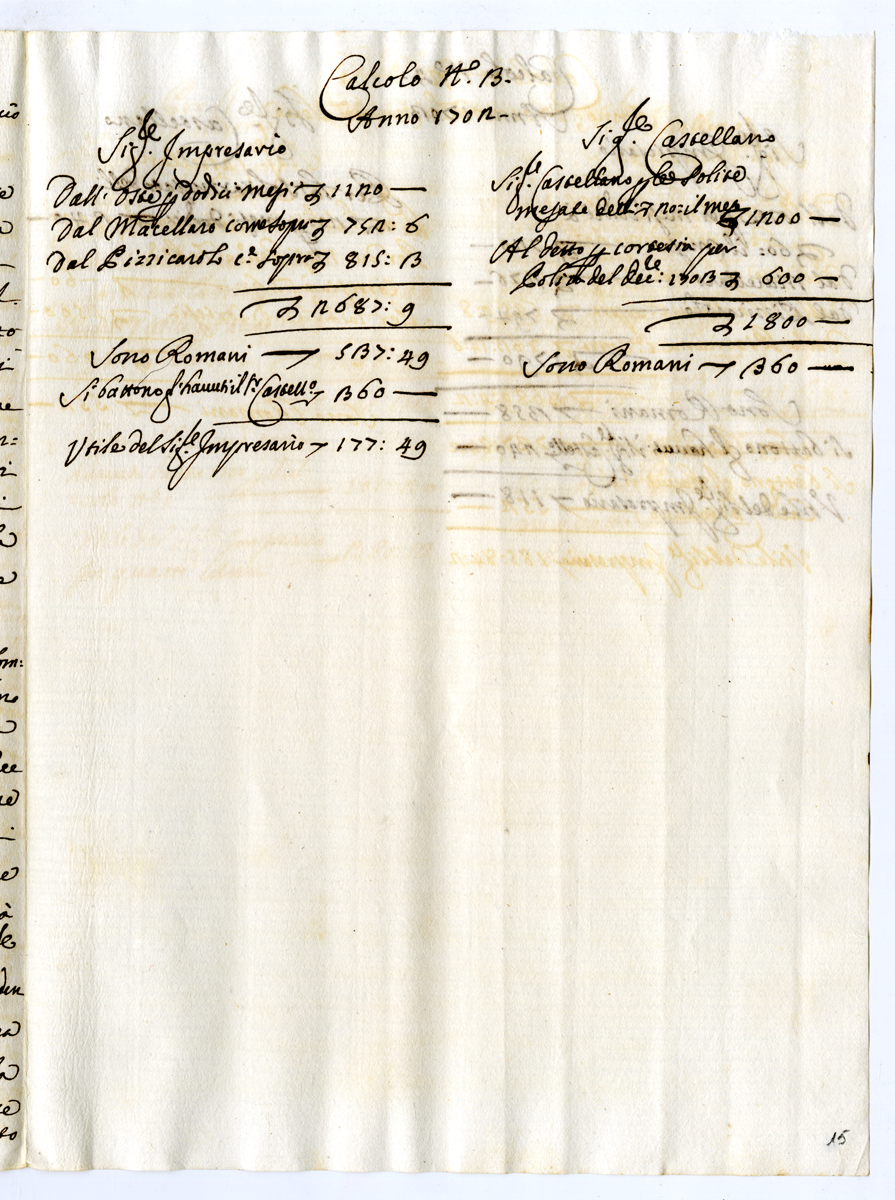 Calcolo N.º 3.
Anno 1702
Sig.le Impresario
Dall'Oste p dodici mesi ʒ 1120 —
Dal Macellaro come sopra ʒ 752: 6
Dal Pizzicarolo c.e sopra ʒ 815: 3
ʒ 2687: 9
Sono Romani — 537: 49
Si battono q.li havuti il S.r Castell.o 360 —
Utile del Sig.le Impresario 177: 49
Sig.le Castellano
Sig.le Castellano p le Solite
mesate il mese ʒ 1200 —
Al detto p cortesia per
del Dec.e: 1703 ʒ 600 —
ʒ 1800 —
Sono Romani — 360 —
15